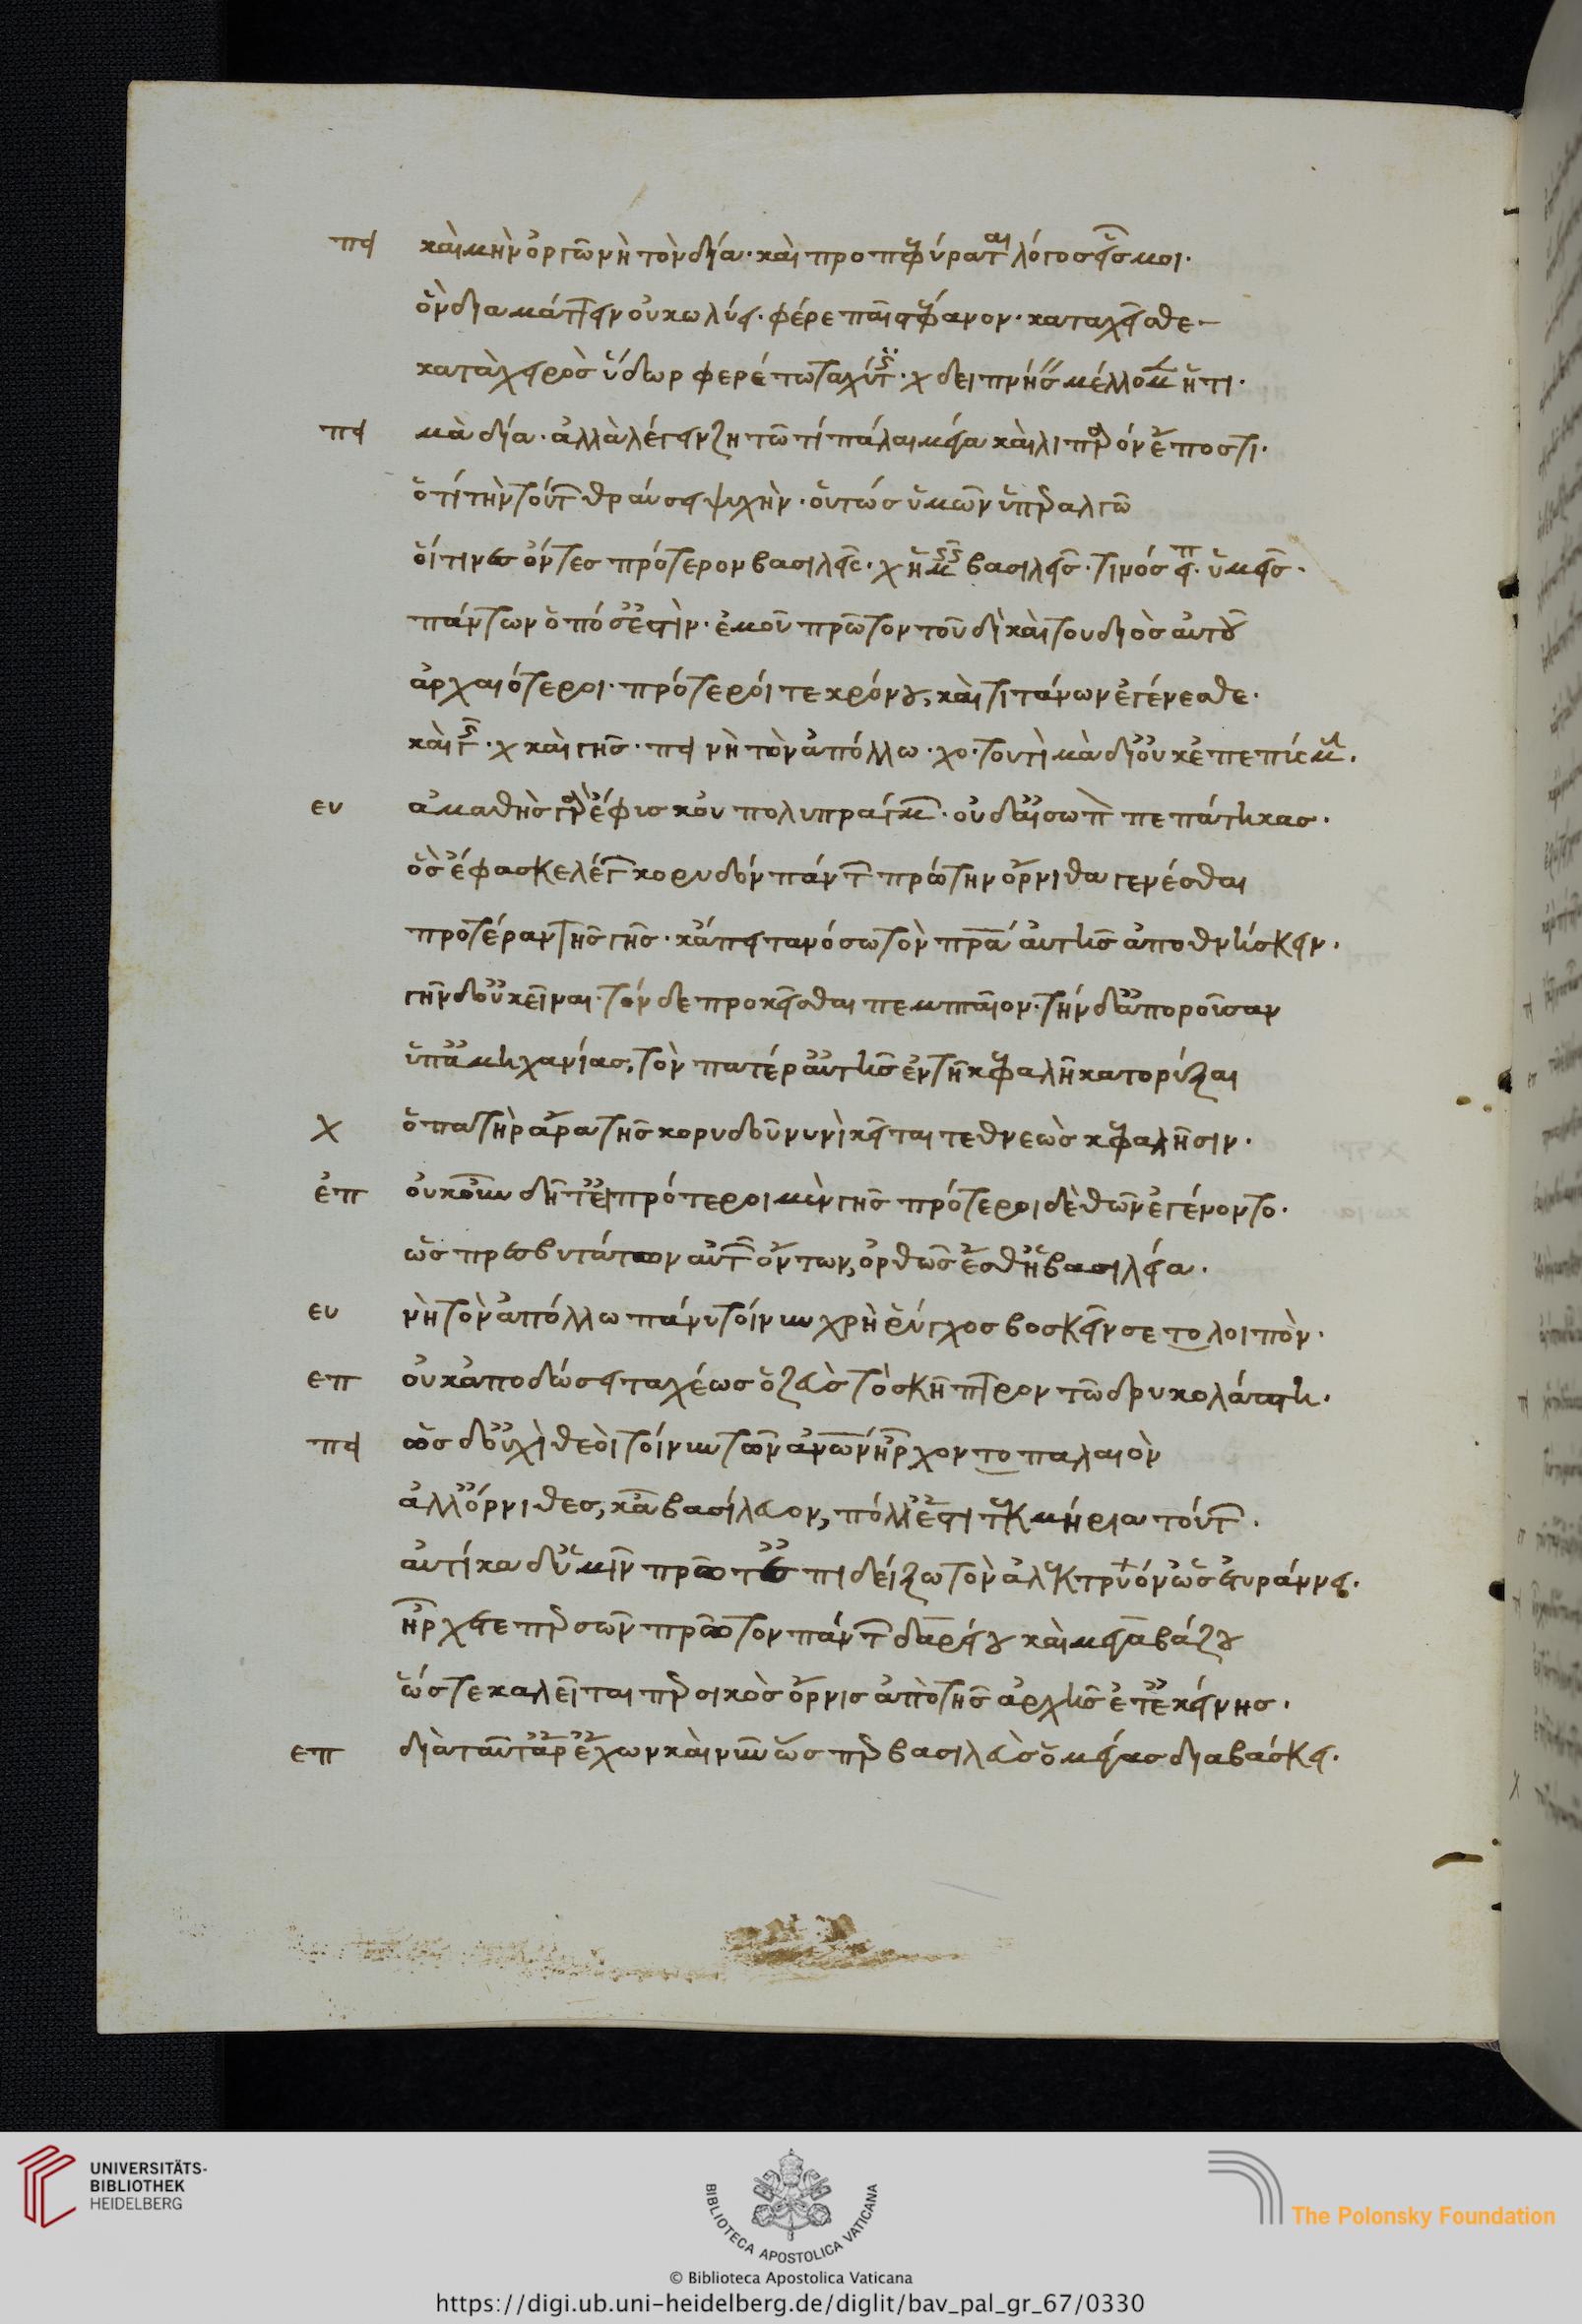 πει καὶ μὴν ὀργῶ νὴ τὸν δία· καὶ προπεφύραται λόγος εἷς μοι·
ὃν διαμάττειν οὐ κωλύει· φέρε παῖ στέφανον· καταχεῖσθε
κατὰ χειρὸς ὕδωρ φερέτω ταχύ τις· χ δειπνήσειν μέλλομεν ἤ τι·
πει μὰ δία· ἀλλὰ λέγειν ζητῶ τί πάλαι μέγα καὶ λιπαρὸν ἔπος τι·
ὅ τι τὴν τούτων θραύσει ψυχὴν· οὕτως ὑμῶν ὑπεραλγῶ
οἵτινες ὄντες πρότερον βασιλεῖς· χ ἡμεῖς βασιλεῖς· τίνος πει· ὑμεῖς·
πάντων ὁπόσ' ἐστὶν· ἐμοῦ πρῶτον τουδὶ καὶ τοῦ διὸς αὐτοῦ
ἀρχαιότεροι· πρότεροί τε κρόνου, καὶ τιτάνων ἐγένεσθε·
καὶ γῆς· χ καὶ γῆς· πει νὴ τὸν ἀπόλλω· χο· τουτὶ μὰ δί' οὐκ ἐπεπύσμην.
ευ ἀμαθὴς γὰρ ἔφυς κοὐ πολυπράγμων· οὐδ' αἴσωπον πεπάτηκας·
ὃς ἔφασκε λέγων κορυδὸν πάντων πρώτην ὄρνιθα γενέσθαι
προτέραν τῆς γῆς· κἄπειτα νόσω τὸν πατέρα αὐτῆς ἀποθνήσκειν·
γῆν δ' οὐκ εἶναι· τόνδε προκεῖσθαι πεμπταῖον· τὴν δ' ἀποροῦσαν
ὑπ' ἀμηχανίας, τὸν πατέρ' αὑτῆς ἐν τῆ κεφαλῆ κατορύξαι
χ ὁ πατὴρ ἄρα τῆς κορυδοῦ νυνὶ κεῖται τεθνεὼς κεφαλῆσιν·
ἐπ οὐκοῦν δῆτ' εἰ πρότεροι μὲν γῆς πρότεροι δὲ θεῶν ἐγένοντο·
ὡς πρεσβυτάτων αὐτῶν ὄντων, ὀρθῶς ἔσθ' ἡ βασιλεία·
ευ νὴ τὸν ἀπόλλω πάνυ τοίνυν χρὴ ῥύγχος βοσκεῖν σε το λοιπὸν·
επ οὐκ ἀποδώσει ταχέως ὁ ζεὺς τὸ σκῆπτρον τῶ δρυκολάπτη·
πει ὡς δ' οὐχὶ θεοὶ τοίνυν τῶν ἀνων ἦρχον το παλαιὸν
ἀλλ' ὄρνιθες, κἀβασίλευον, πόλλ' ἔστι τεκμήρια τούτων·
αὐτίκα δ' ὑμῖν πρῶτ' ἐπιδείξω τὸν ἀλεκτρυόν' ὡς ἐτυράννει·
ἦρχέ τε περσῶν πρῶτον πάντων δαρείου καὶ μεγαβάζου
ὥστε καλεῖται περσικὸς ὄρνις ἀπὸ τῆς ἀρχῆς ἔτ' ἐκείνης·
επ διὰ ταῦτ' ἄρ' ἔχων καὶ νῦν ὥσπερ βασιλεὺς ὁ μέγας διαβάσκει·
UNIVERSITÄTS-
BIBLIOTHEK
HEIDELBERG
BIBLIOTECA APOSTOLICA VATICANA
The Polonsky Foundation
© Biblioteca Apostolica Vaticana
https://digi.ub.uni-heidelberg.de/diglit/bav_pal_gr_67/0330